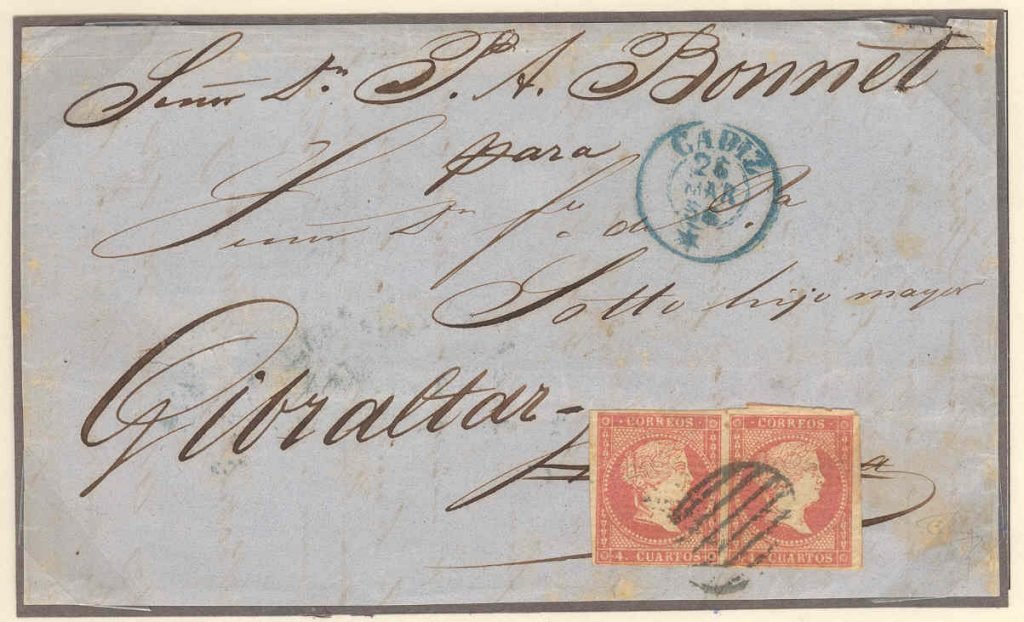 Señor Dn. P. A. Bonnet
para
Señor Dn. fco. de Pla
Sotto hijo mayor
Gibraltar-
CADIZ
26
MAR
CORREOS
4. CUARTOS
CORREOS
4. CUARTOS